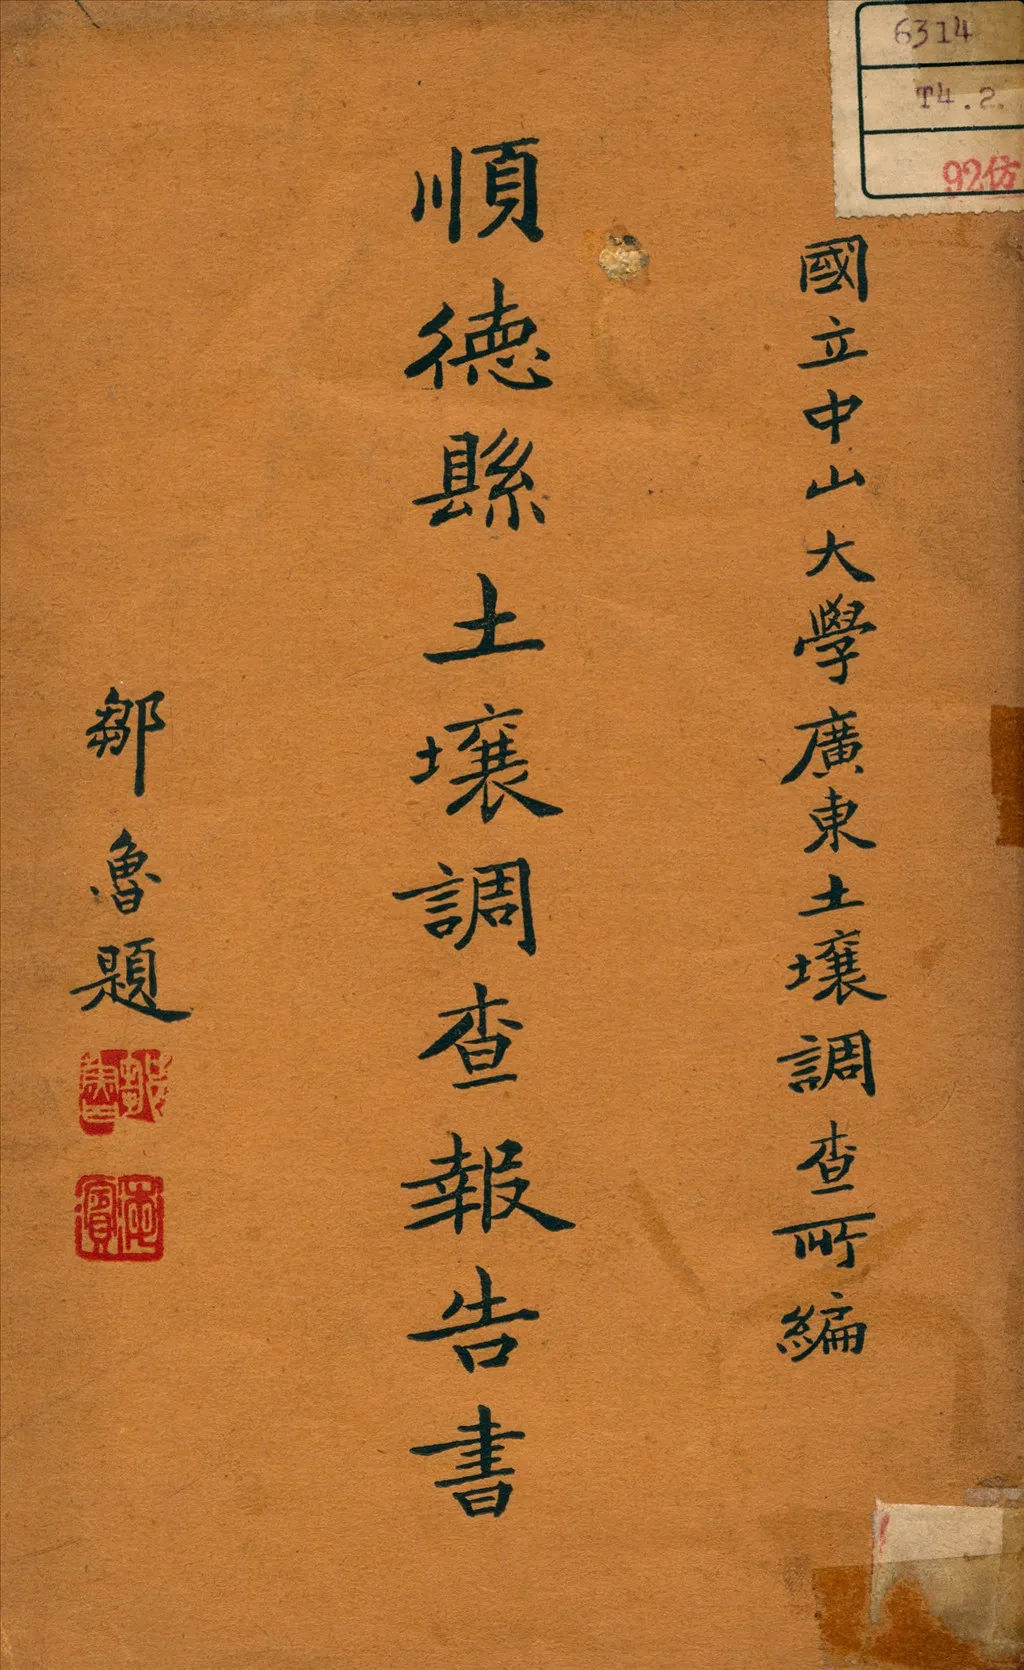 6314
T4.2.
92仿
國立中山大學廣東土壤調查所編
順德縣土壤調查報告書
鄒魯題
鄒魯
海濱